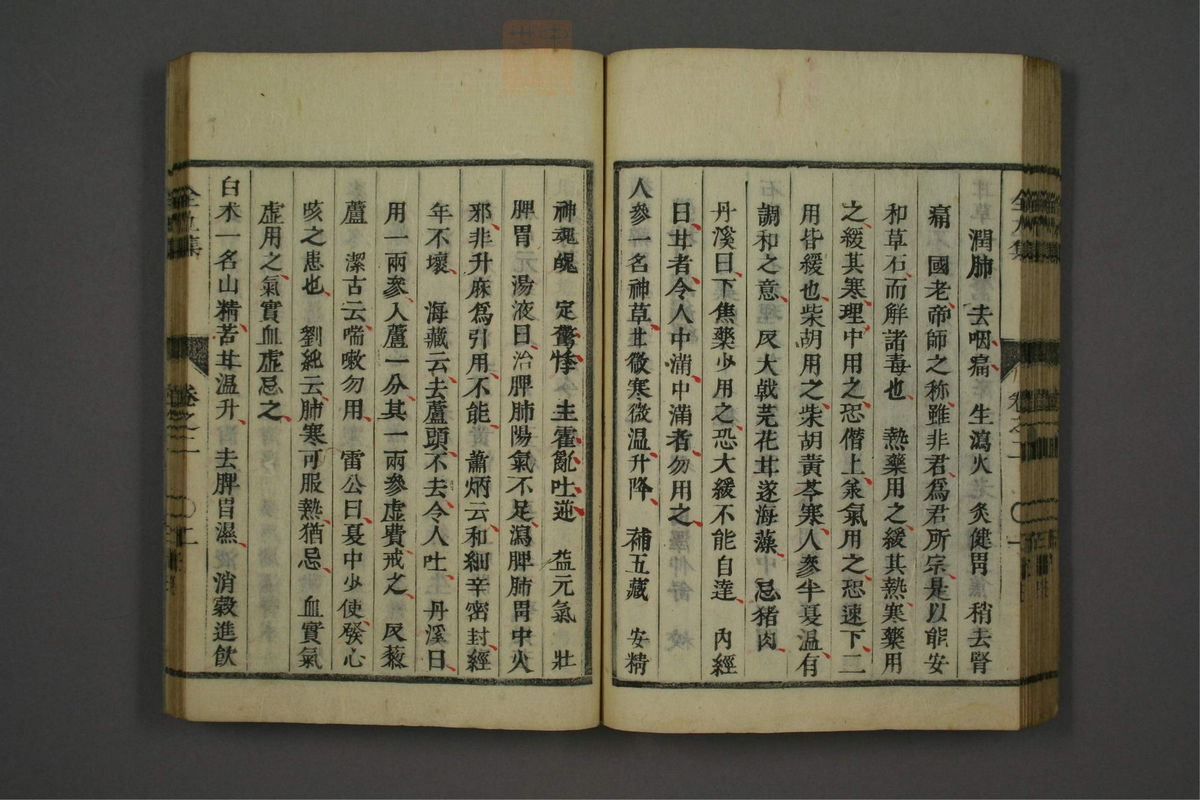 潤肺 去咽痛 生瀉火 炙健胃 稍去腎
痛 國老帝師之称雖非君爲君所宗是以能安
和草石而解諸毒也 熱藥用之緩其熱寒藥用
之緩其寒理中用之恐僭上兼氣用之恐速下二
用皆緩也柴胡用之柴胡黃芩寒人參半夏温有
調和之意 反大戟芫花甘遂海藻 忌猪肉
丹溪曰下焦藥少用之恐大緩不能自達 内經
曰甘者令人中滿中滿者勿用之
人參一名神草甘微寒微温升降 補五藏 安精
神魂魄 定驚悸 主霍亂吐逆 益元氣 壯
脾胃 湯液曰治脾肺陽氣不足瀉脾肺胃中火
邪非升麻爲引用不能 蕭炳云和細辛密封經
年不壞 海藏云去蘆頭不去令人吐 丹溪曰
用一兩參入蘆一分其一兩參虛費戒之 反藜
蘆 潔古云喘嗽勿用 雷公曰夏中少使發心
痎之患也 劉純云肺寒可服熱猶忌 血實氣
虛用之氣實血虛忌之
白术一名山精苦甘温升 去脾胃濕 消穀進飲